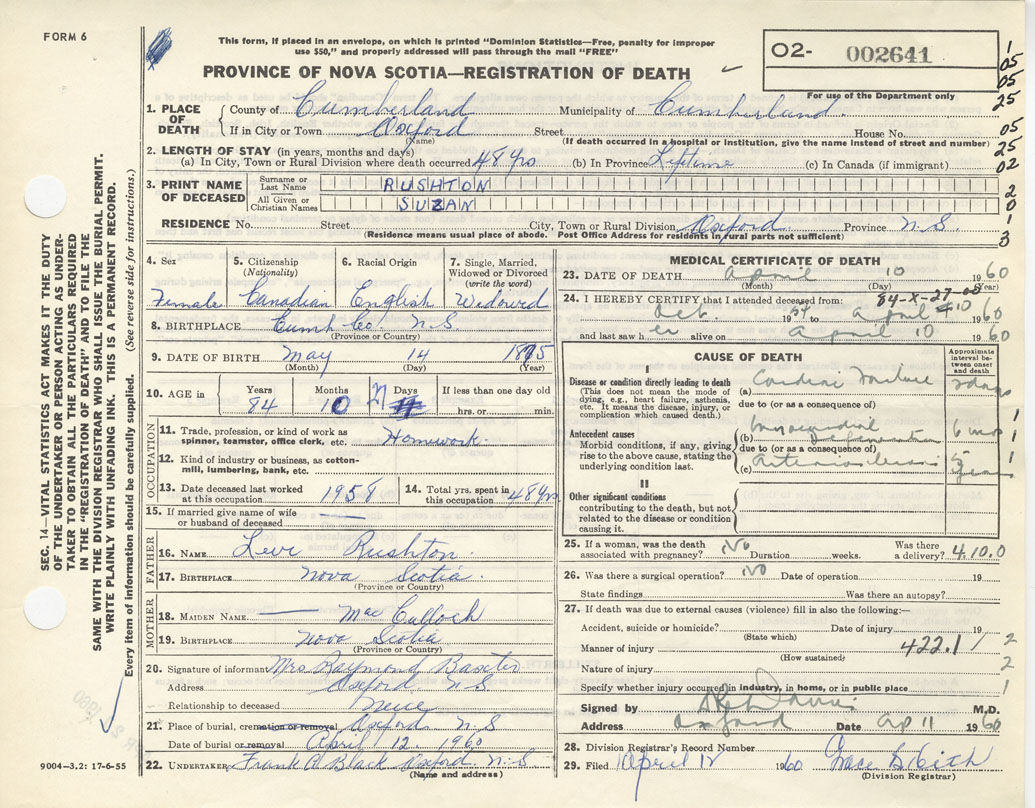 FORM 6
This form, if placed in an envelope, on which is printed "Dominion Statistics—Free, penalty for improper
use $50," and properly addressed will pass through the mail "FREE"
PROVINCE OF NOVA SCOTIA—REGISTRATION OF DEATH
02- 002641
For use of the Department only
1. PLACE OF DEATH County of Cumberland Municipality of Cumberland
If in City or Town Oxford Street House No.
(Name) (If death occurred in a hospital or institution, give the name instead of street and number)
2. LENGTH OF STAY (in years, months and days)
(a) In City, Town or Rural Division where death occurred 48 yrs (b) In Province Lifetime (c) In Canada (if immigrant)
3. PRINT NAME OF DECEASED Surname or Last Name RUSHTON
All Given or Christian Names SUZAN
RESIDENCE No. Street City, Town or Rural Division Oxford Province N.S.
(Residence means usual place of abode. Post Office Address for residents in rural parts not sufficient)
1
05
05
25
05
25
02
2
0
1
3
4. Sex 5. Citizenship (Nationality) 6. Racial Origin 7. Single, Married, Widowed or Divorced (write the word)
Female Canadian English Widowed
8. BIRTHPLACE Cumb Co. N S
(Province or Country)
9. DATE OF BIRTH May 14 1875
(Month) (Day) (Year)
10. AGE in Years Months Days If less than one day old
84 10 27 hrs. or min.
OCCUPATION
11. Trade, profession, or kind of work as
spinner, teamster, office clerk, etc. Homework
12. Kind of industry or business, as cotton-
mill, lumbering, bank, etc.
13. Date deceased last worked
at this occupation 1958 14. Total yrs. spent in
this occupation 48 yrs
15. If married give name of wife
or husband of deceased
FATHER
16. NAME Levi Rushton
17. BIRTHPLACE Nova Scotia
(Province or Country)
MOTHER
18. MAIDEN NAME Mac Culloch
19. BIRTHPLACE Nova Scotia
(Province or Country)
20. Signature of informant Mrs Raymond Baxter
Address Oxford N S
Relationship to deceased Niece
21. Place of burial, cremation or removal Oxford N.S
Date of burial or removal April 12, 1960
22. UNDERTAKER Frank A Black Oxford N.S.
(Name and address)
MEDICAL CERTIFICATE OF DEATH
23. DATE OF DEATH April 10 1960
(Month) (Day) (Year)
84-X-27-05
24. I HEREBY CERTIFY that I attended deceased from:
Oct. 1954 to April 10 1960
and last saw her alive on April 10 1960
CAUSE OF DEATH
Approximate
interval between
onset
and death
I
Disease or condition directly leading to death
(This does not mean the mode of
dying, e.g., heart failure, asthenia,
etc. It means the disease, injury, or
complication which caused death.)
(a) Cardiac Failure 2 days
due to (or as a consequence of)
Antecedent causes
Morbid conditions, if any, giving
rise to the above cause, stating the
underlying condition last.
(b) Myocardial Degeneration 6 mos 1
due to (or as a consequence of) 1
(c) Arteriosclerosis 5 years 1
II
Other significant conditions
contributing to the death, but not
related to the disease or condition
causing it.
25. If a woman, was the death
associated with pregnancy? No Duration weeks. Was there
a delivery? 4.10.0
26. Was there a surgical operation? No Date of operation 19
State findings Was there an autopsy?
27. If death was due to external causes (violence) fill in also the following:—
Accident, suicide or homicide? Date of injury 19
(State which)
Manner of injury 422.1
(How sustained)
Nature of injury
Specify whether injury occurred in industry, in home, or in public place
2
2
1
Signed by M.D.
Address Oxford Date Ap 11 1960
28. Division Registrar's Record Number
29. Filed April 12 1960
(Division Registrar)
SEC. 14—VITAL STATISTICS ACT MAKES IT THE DUTY
OF THE UNDERTAKER OR PERSON ACTING AS UNDER-
TAKER TO OBTAIN ALL THE PARTICULARS REQUIRED
IN THE "REGISTRATION OF DEATH" AND TO FILE THE
SAME WITH THE DIVISION REGISTRAR WHO SHALL ISSUE THE BURIAL PERMIT.
WRITE PLAINLY WITH UNFADING INK. THIS IS A PERMANENT RECORD.
Every item of information should be carefully supplied. (See reverse side for instructions.)
9004—3.2: 17-6-55